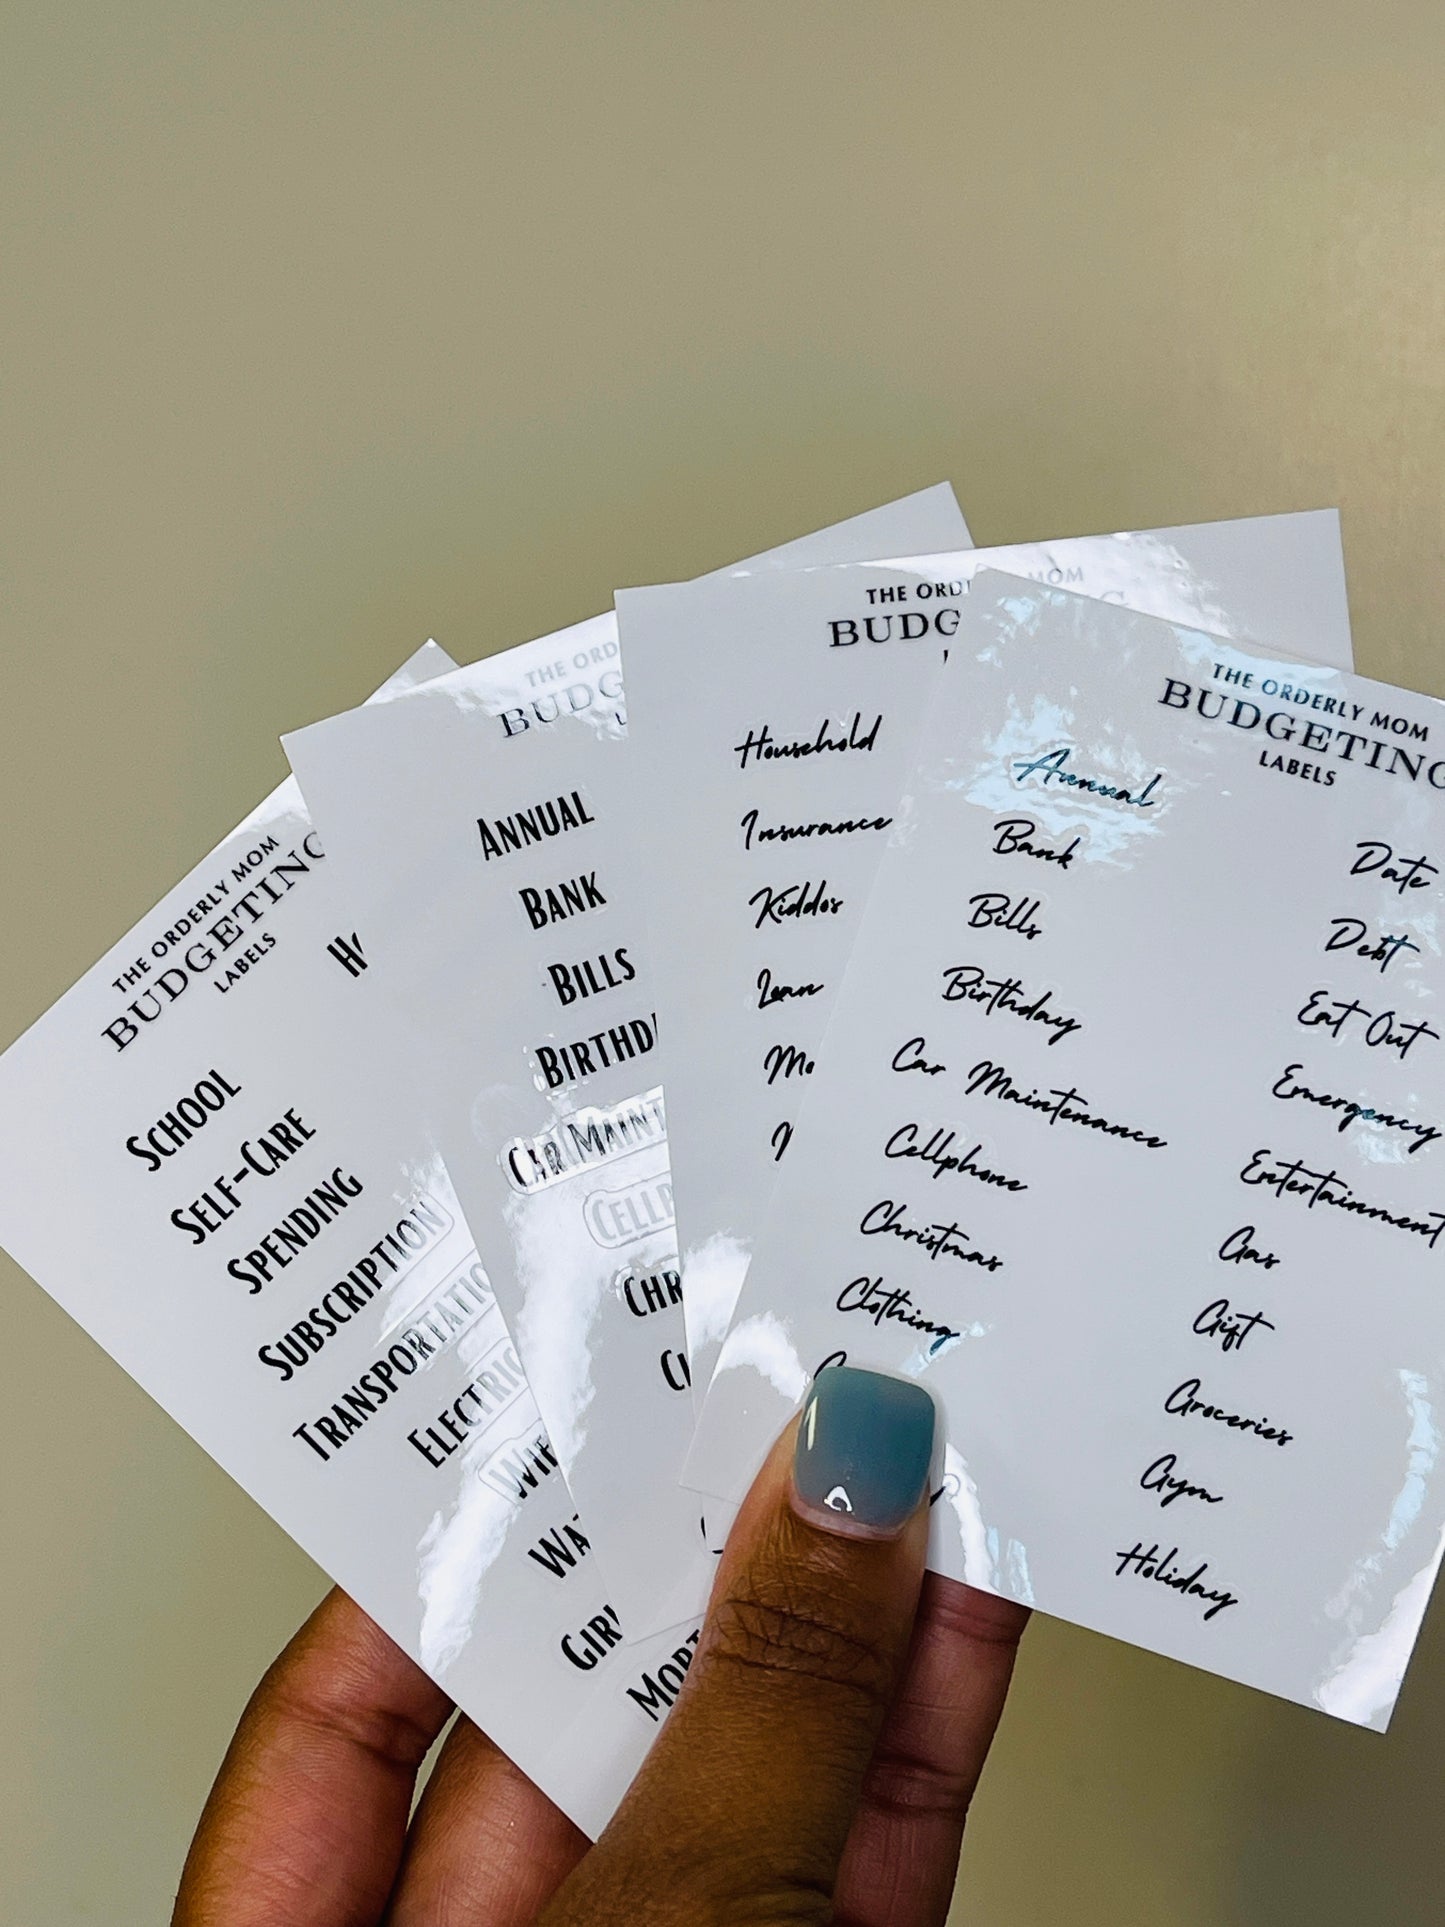 THE ORDERLY MOM
BUDGETING
LABELS
SCHOOL
SELF-CARE
SPENDING
SUBSCRIPTION
TRANSPORTATIO
ELECTRIC
WIF
WA
GIRL
MORT
THE ORD
BUDG
ANNUAL
BANK
BILLS
BIRTHD
CAR MAINT
CELLP
CHR
THE ORD
BUDG
Household
Insurance
Kiddos
Loan
Mo
MOM
THE ORDERLY MOM
BUDGETING
LABELS
Annual
Bank
Bills
Birthday
Car Maintenance
Cellphone
Christmas
Clothing
Date
Debt
Eat Out
Emergency
Entertainment
Gas
Gift
Groceries
Gym
Holiday